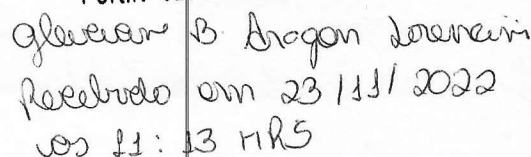 Gleiciane B Aragon Lorencini
Recebido em 23/11/2022
as 11:13 HRS